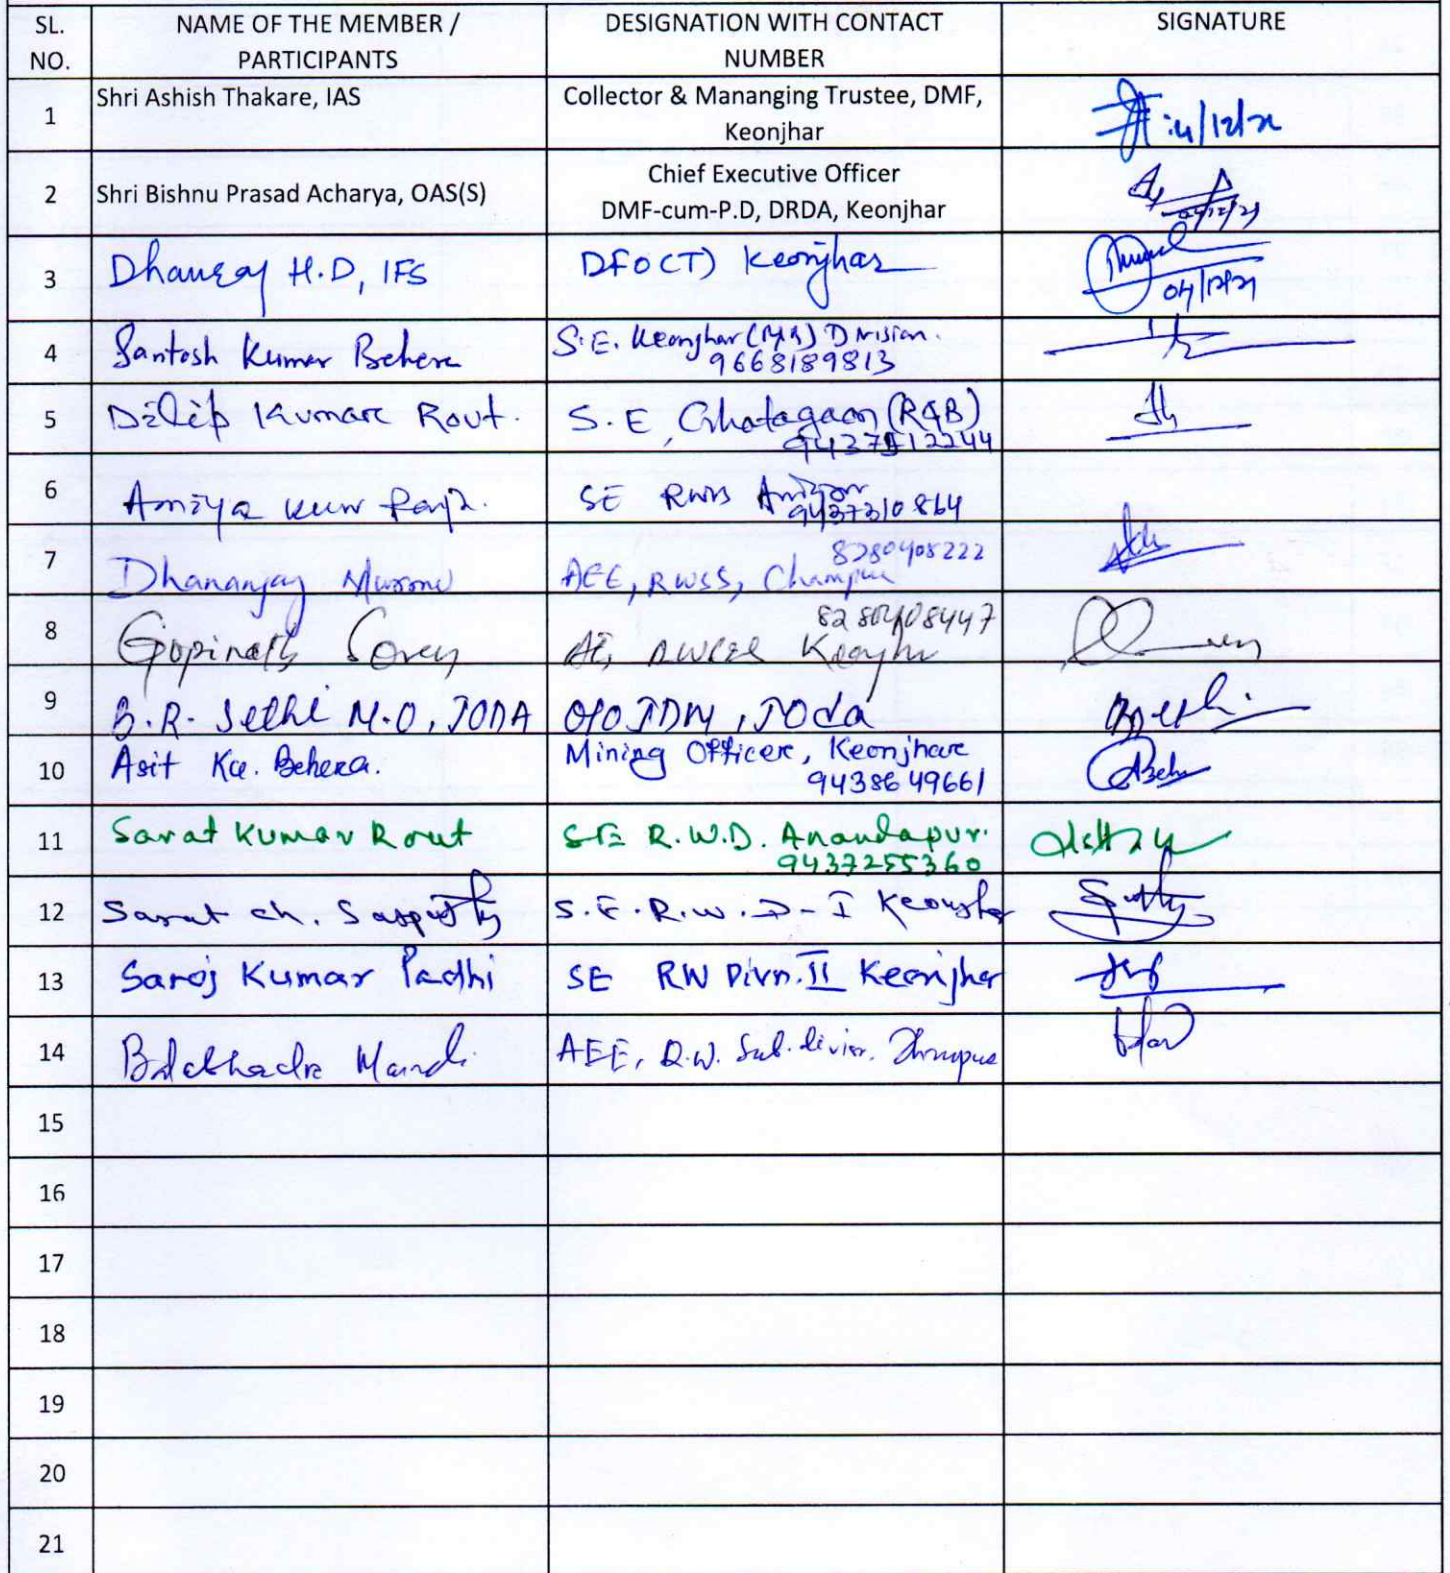 SL. NO.
NAME OF THE MEMBER / PARTICIPANTS
DESIGNATION WITH CONTACT NUMBER
SIGNATURE
1
Shri Ashish Thakare, IAS
Collector & Mananging Trustee, DMF,
Keonjhar
2
Shri Bishnu Prasad Acharya, OAS(S)
Chief Executive Officer
DMF-cum-P.D, DRDA, Keonjhar
3
Dhanraj H.D, IFS
DFO(T) Keonjhar
04/12/21
4
Santosh Kumar Behera
S.E. Keonjhar (R&B) Division.
9668189813
5
Dilip Kumar Rout.
S.E, Ghatagaon (R&B)
9437512244
6
Amiya
SE
9437310864
7
Dhananjay Murmu
8280408222
AEE, RWSS, Champua
8
Gopinath Soren
8280408447
Keonjhar
9
B.R. Sethi M.O, JODA
O/O JDM, JOda
10
Asit Ku. Behera.
Mining Officer, Keonjhar
9438649661
11
Sarat Kumar Rout
SE R.W.D. Anandapur.
9437255360
12
Sarat ch. Satpathy
S.E.R.W.D-I Keonjhar
13
Saroj Kumar Padhi
SE RW Divn. II Keonjhar
14
Balabhadra Mandi
AEE, R.W. Sub-division,
15
16
17
18
19
20
21